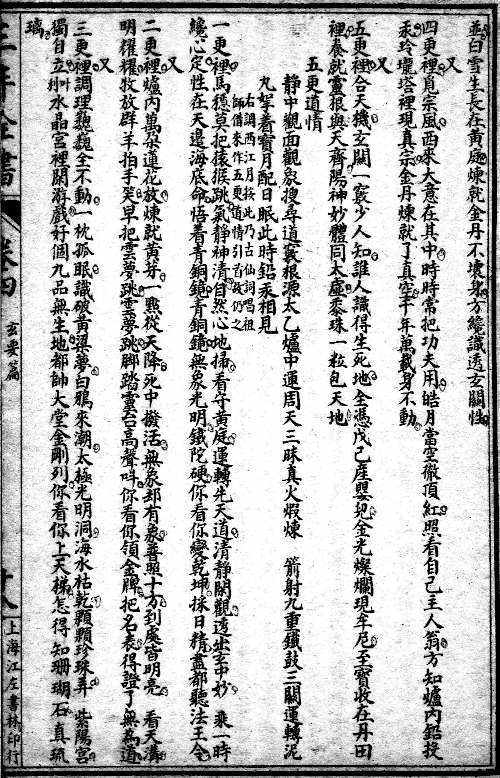 並白雪生長在黃庭煉就金丹不壞身方纔識透玄關性
又
四更裡覓宗風西來大意在其中時時常把功夫用皓月當空徹頂紅照看自己主人翁方知爐內鉛投
汞玲瓏塔裡現真宗金丹煉就了真空千年萬載身不動
又
五更裡合天機玄關一竅少人知誰人識得生死地全憑戊己產嬰兒金光燦爛現牟尼至寶收在丹田
裡養就靈根與天齊陽神妙體同太虛黍珠一粒包天地
五更道情
靜中觀面觀象搜尋道竅根源太乙爐中運周天三昧真火煅煉 箭射九重鐵鼓三關運轉泥
九犂着寶月配日眠此時鉛汞相見
右調西江月按此乃古仙詞唱祖
師借來作五更道情引首故仍之
一更裡馬德莫把猿猴跳氣靜神清自然心地掃看守黃庭運轉先天道清靜關觀透出玄中妙 乘一時
纔心定性在天邊海底命悟着青銅鏡青銅鏡無象光明鐵陀硬你看你變乾坤採日精盡都聽法王令
又
二更裡爐內萬朵蓮花放煉就黃芽一點從天降死中撥活無象却有象普照十方到處皆明亮 看天溝
明耀耀救放群羊拍手笑早把雲夢跳雲夢跳脚踏靈台高聲呌你看你領金牌把名表得證了無為道
又
三更裡調理巍巍全不動一枕孤眠識破黃粱夢白鴉來潮太極光明洞海水枯乾顆顆珍珠弄 紫陽宮
獨自立水晶宮裡閑游戲好個九品無生地都帥大堂金剛列你看你上天梯怎得知珊瑚石真琉
璃
卷四
玄要篇
十八
上海江左書林印行